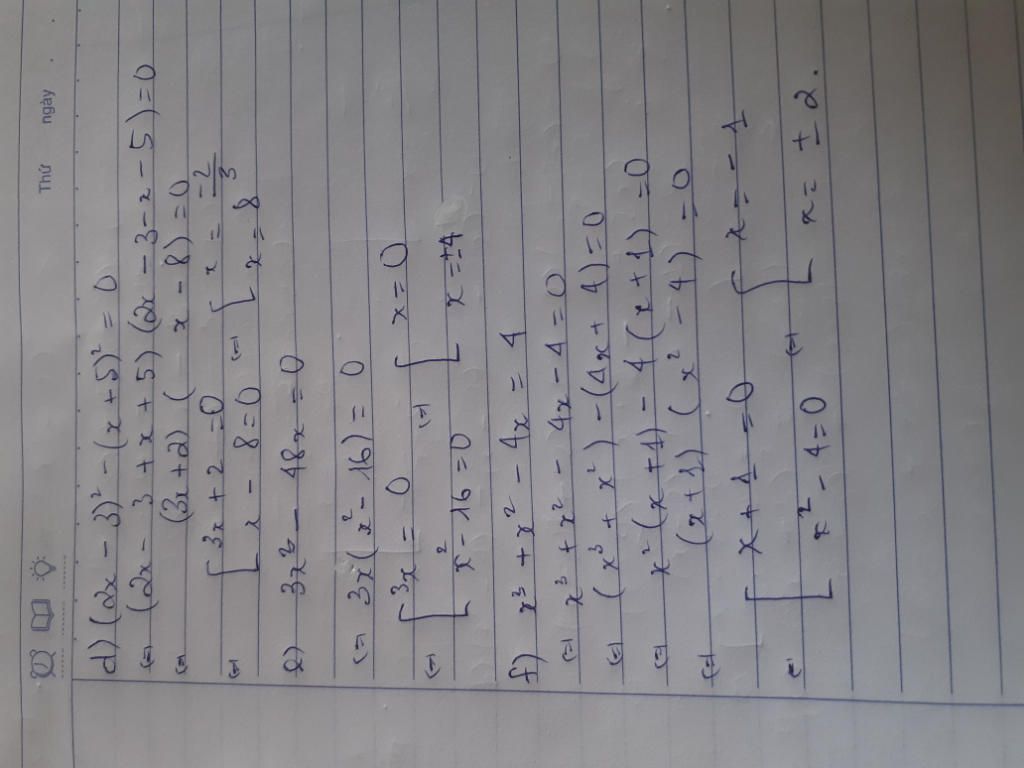 Thứ ngày
d) (2x - 3)² - (x + 5)² = 0
(=) (2x - 3 + x + 5) (2x - 3 - x - 5) = 0
(=) (3x + 2) ( x - 8) = 0
(=) [ 3x + 2 = 0 (=) [ x = -2/3
x - 8 = 0 x = 8
e) 3x³ - 48x = 0
(=) 3x (x² - 16) = 0
(=) [ 3x = 0 (=) [ x = 0
x² - 16 = 0 x = ±4
f) x³ + x² - 4x = 4
(=) x³ + x² - 4x - 4 = 0
(=) (x³ + x²) - (4x + 4) = 0
(=) x² (x + 1) - 4 (x + 1) = 0
(=) (x + 1) (x² - 4) = 0
(=) [ x + 1 = 0 (=) [ x = - 1
x² - 4 = 0 x = ± 2.